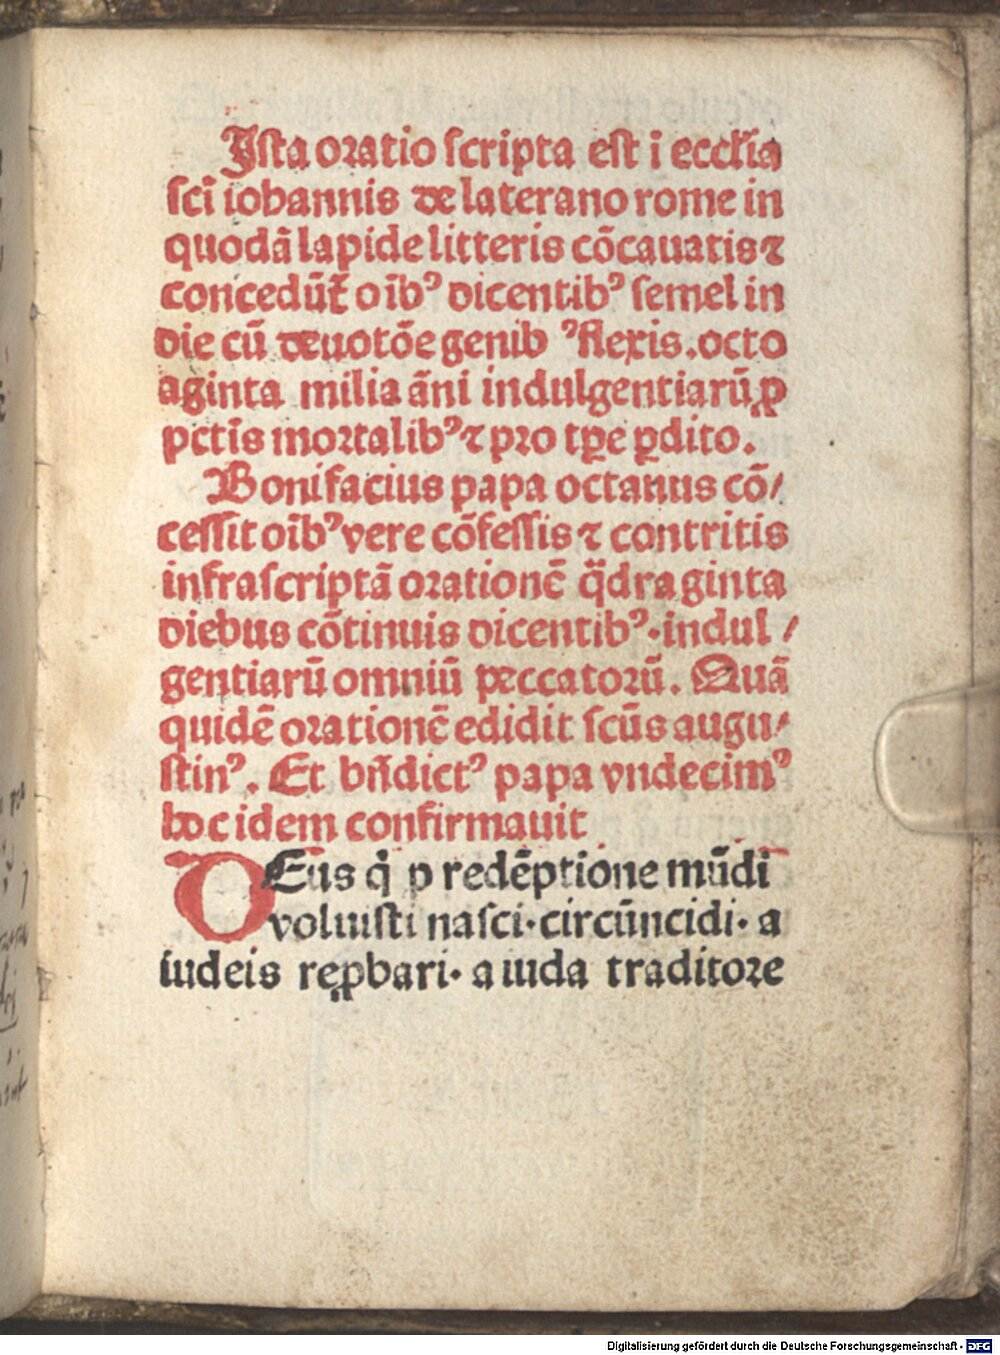 Ista oratio scripta est ī eccl'ia
scī iohannis de laterano rome in
quodā lapide litteris cōcauatis ⁊
concedūt᷑ oībꝰ dicentibꝰ semel in
die cū deuotōe genibꝰ flexis. octo
aginta milia āni indulgentiarū ꝓ
pctīs mortalibꝰ ⁊ pro tꝑe ꝑdito.
Bonifacius papa octauus cō/
cessit oībꝰ vere cōfessis ⁊ contritis
infrascriptā orationē q̄draginta
diebus cōtinuis dicentibꝰ. indul/
gentiarū omniū peccatorū. Quā
quidē orationē edidit scūs augu/
stinꝰ. Et bn̄dictꝰ papa vndecimꝰ
hoc idem confirmauit
DEus q̇ ꝓ redēptione mūdi
voluisti nasci. circūncidi. a
iudeis reꝓbari. a iuda traditore
Digitalisierung gefördert durch die Deutsche Forschungsgemeinschaft - DFG